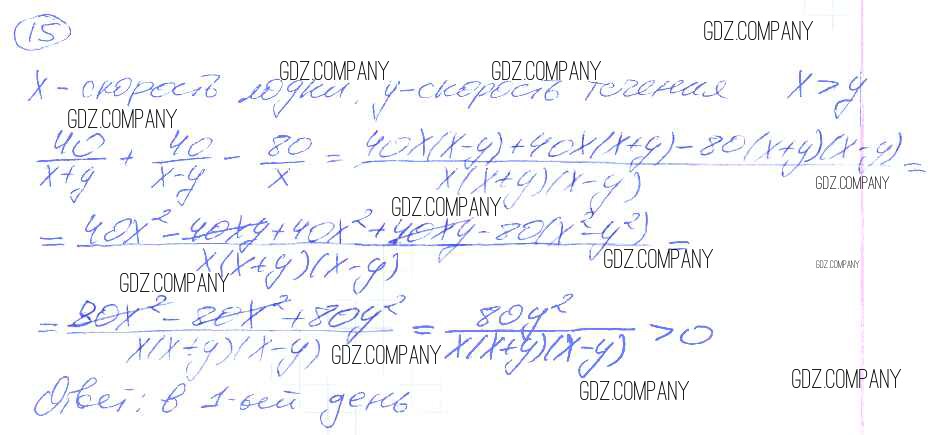 15
GDZ.COMPANY
x - скорость лодки, y - скорость течения x > y
GDZ.COMPANY GDZ.COMPANY
GDZ.COMPANY
40/(x+y) + 40/(x-y) - 80/x = (40x(x-y)+40x(x+y)-80(x+y)(x-y))/(x(x+y)(x-y)) =
GDZ.COMPANY
GDZ.COMPANY
= (40x²-40xy+40x²+40xy-80(x²-y²))/(x(x+y)(x-y)) =
GDZ.COMPANY GDZ.COMPANY
GDZ.COMPANY
= (80x²-80x²+80y²)/(x(x+y)(x-y)) = 80y²/(x(x+y)(x-y)) > 0
GDZ.COMPANY
GDZ.COMPANY GDZ.COMPANY
Ответ: в 1-ый день